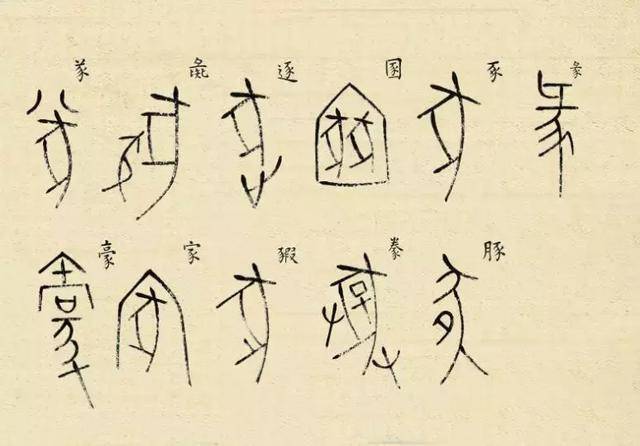 㒸 彘 逐 圂 豕 彖
豪 家 豭 豢 豚